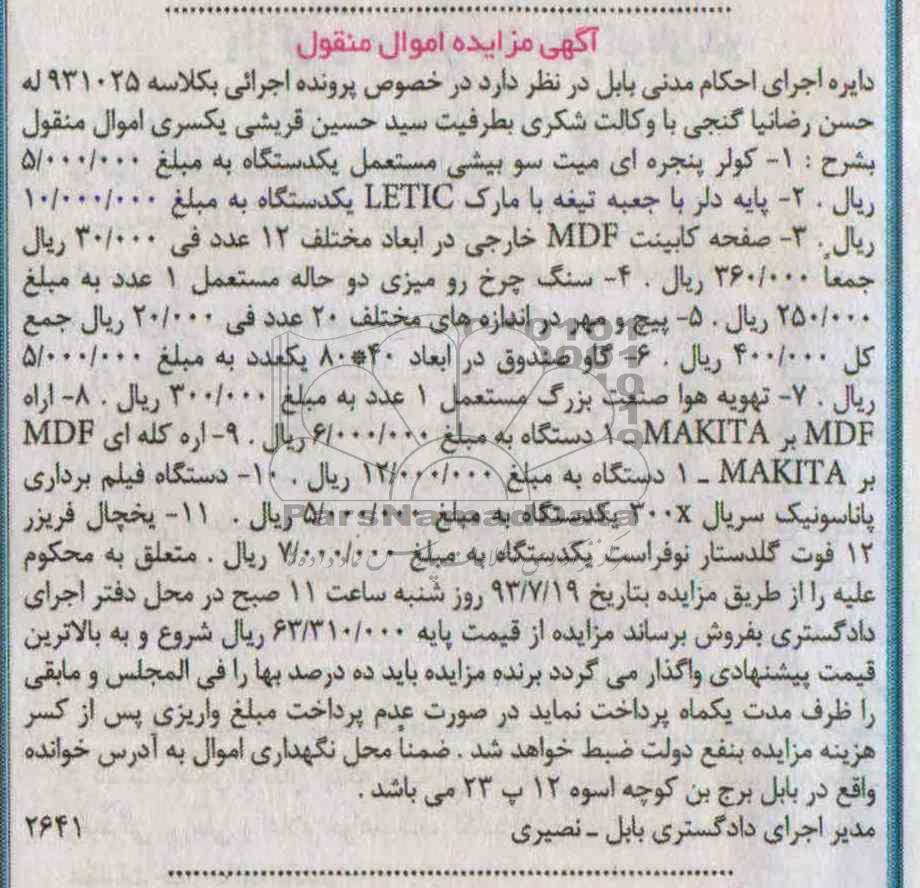 آگهی مزایده اموال منقول
دایره اجرای احکام مدنی بابل در نظر دارد در خصوص پرونده اجرائی بکلاسه ۹۳۱۰۲۵ له
حسن رضانیا گنجی با وکالت شکری بطرفیت سید حسین قریشی یکسری اموال منقول
بشرح : ۱- کولر پنجره ای میت سو بیشی مستعمل یکدستگاه به مبلغ ۵/۰۰۰/۰۰۰
ریال . ۲- پایه دلر با جعبه تیغه با مارک LETIC یکدستگاه به مبلغ ۱۰/۰۰۰/۰۰۰
ریال . ۳- صفحه کابینت MDF خارجی در ابعاد مختلف ۱۲ عدد فی ۳۰/۰۰۰ ریال
جمعاً ۳۶۰/۰۰۰ ریال . ۴- سنگ چرخ رو میزی دو حاله مستعمل ۱ عدد به مبلغ
۲۵۰/۰۰۰ ریال . ۵- پیچ و مهر در اندازه های مختلف ۲۰ عدد فی ۲۰/۰۰۰ ریال جمع
کل ۴۰۰/۰۰۰ ریال . ۶- گاو صندوق در ابعاد ۴۰*۸۰ یکعدد به مبلغ ۵/۰۰۰/۰۰۰
ریال . ۷- تهویه هوا صنعت بزرگ مستعمل ۱ عدد به مبلغ ۳۰۰/۰۰۰ ریال . ۸- اراه
MDF بر MAKITA ـ ۱ دستگاه به مبلغ ۶/۰۰۰/۰۰۰ ریال . ۹- اره کله ای MDF
بر MAKITA ـ ۱ دستگاه به مبلغ ۱۲/۰۰۰/۰۰۰ ریال . ۱۰- دستگاه فیلم برداری
پاناسونیک سریال ۳۰۰X یکدستگاه به مبلغ ۵/۰۰۰/۰۰۰ ریال . ۱۱- یخچال فریزر
ParsNamadData
۱۲ فوت گلدستار نوفراست یکدستگاه به مبلغ ۷/۰۰۰/۰۰۰ ریال . متعلق به محکوم
علیه را از طریق مزایده بتاریخ ۹۳/۷/۱۹ روز شنبه ساعت ۱۱ صبح در محل دفتر اجرای
دادگستری بفروش برساند مزایده از قیمت پایه ۶۳/۳۱۰/۰۰۰ ریال شروع و به بالاترین
قیمت پیشنهادی واگذار می گردد برنده مزایده باید ده درصد بها را فی المجلس و مابقی
را ظرف مدت یکماه پرداخت نماید در صورت عدم پرداخت مبلغ واریزی پس از کسر
هزینه مزایده بنفع دولت ضبط خواهد شد . ضمناً محل نگهداری اموال به آدرس خوانده
واقع در بابل برج بن کوچه اسوه ۱۲ پ ۲۳ می باشد .
مدیر اجرای دادگستری بابل ـ نصیری ۲۶۴۱